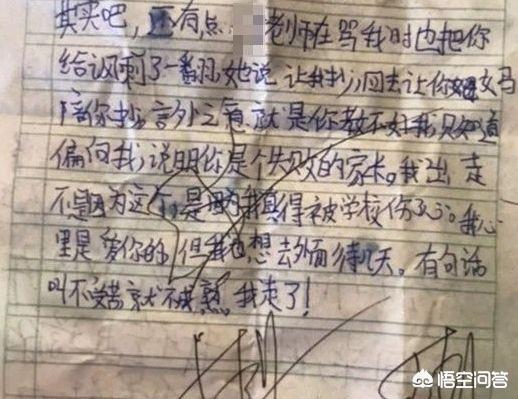 其实吧,还有点 老师在骂我时也把你
给讽刺了一番,她说让我抄,回去让你妈
陪你抄,言外之意就是你教不好我,只知道
偏向我,说明你是个失败的家长。我出走
不是因为这个,是因为我真得被学校伤了心。我心
里是爱你的,但我也想去外面待几天。有句话
叫不受苦就不成熟,我走了!
悟空问答